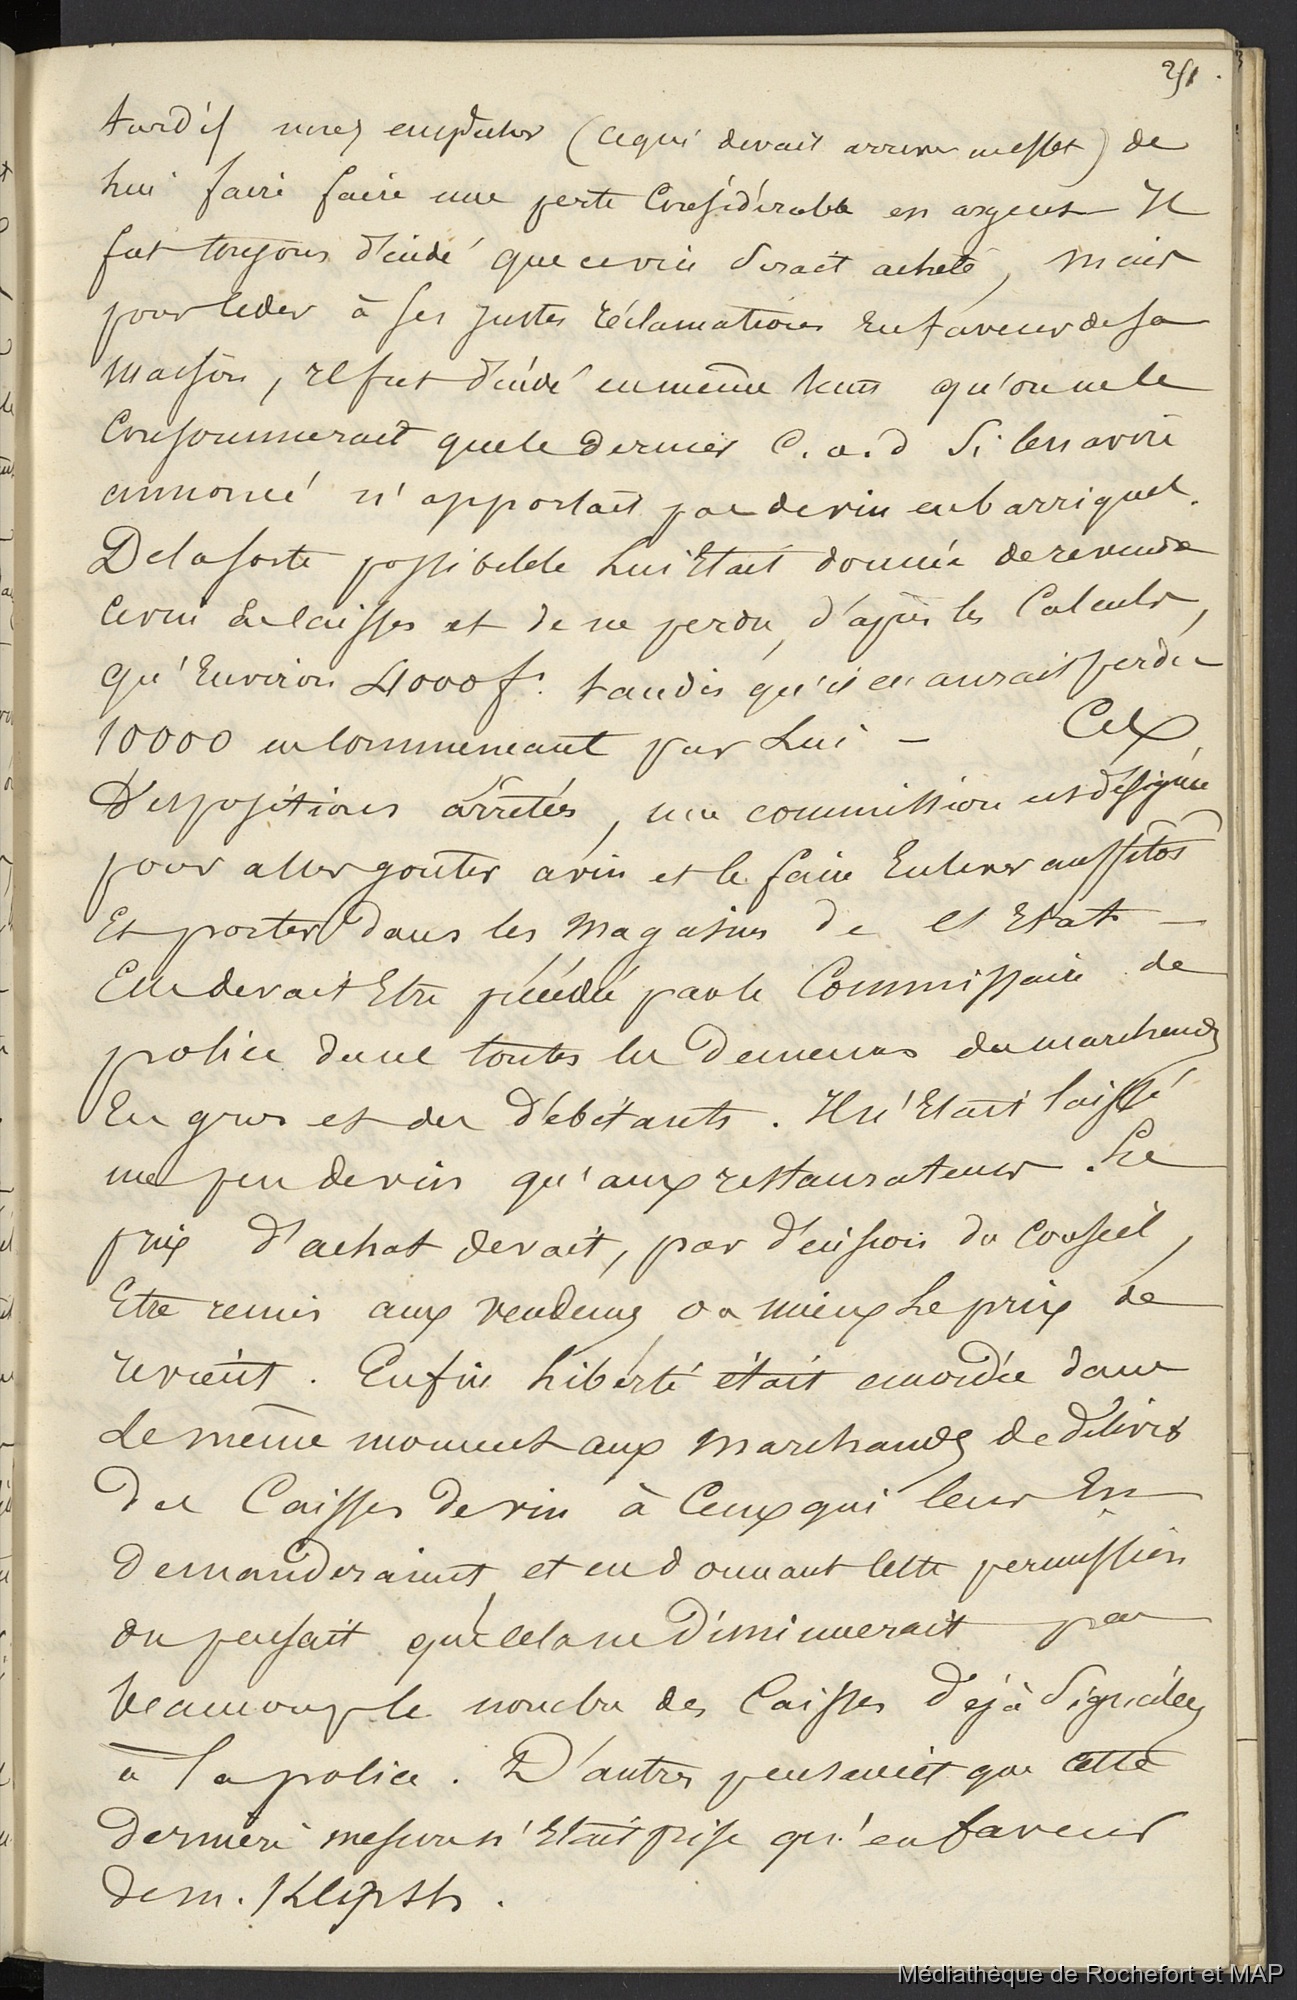 251.
tardif (ce qui devait arriver ) de
lui faire faire une perte considérable en argent – Il
fut toujours décidé que ce vin serait acheté, mais
pour céder à ses justes réclamations en faveur de sa
maison, il fut décidé en même tems qu'on ne le
consommerait que le dernier c. a. d si les navire
annoncé n'apportait pas de vin en barriques.
De la sorte possibilité lui était donnée de revendre
ce vin de caisses et de ne perdre, d'après les calculs,
qu'environ 4000f. tandis qu'il en aurait perdu
10000 en commencant par lui – Ces
Dispositions arrêtées, une commission est désignée
pour aller goûter ce vin et le faire enlever aussitôt
et porter dans les magasins de l'Etat –
Elle devait être précédée par le Commissaire de
police dans toutes les demeures des marchands
en gros et des débitants. Il n'était laissé
un peu de vin qu'aux restaurateurs. Le
prix d'achat devait, par décision du conseil,
être remis aux vendeurs ou mieux le prix de
revient. Enfin liberté était accordée dans
le même moment aux marchands de délivrer
des caisses de vin à ceux qui leur en
demanderaient, et en donnant cette permission
on pensait que cela ne diminuerait pas
beaucoup le nombre des caisses déjà signalées
à la police. D'autres pensaient que cette
dernière mesure n'était prise qu'en faveur
de m. Klipsh.
Médiathèque de Rochefort et MAP